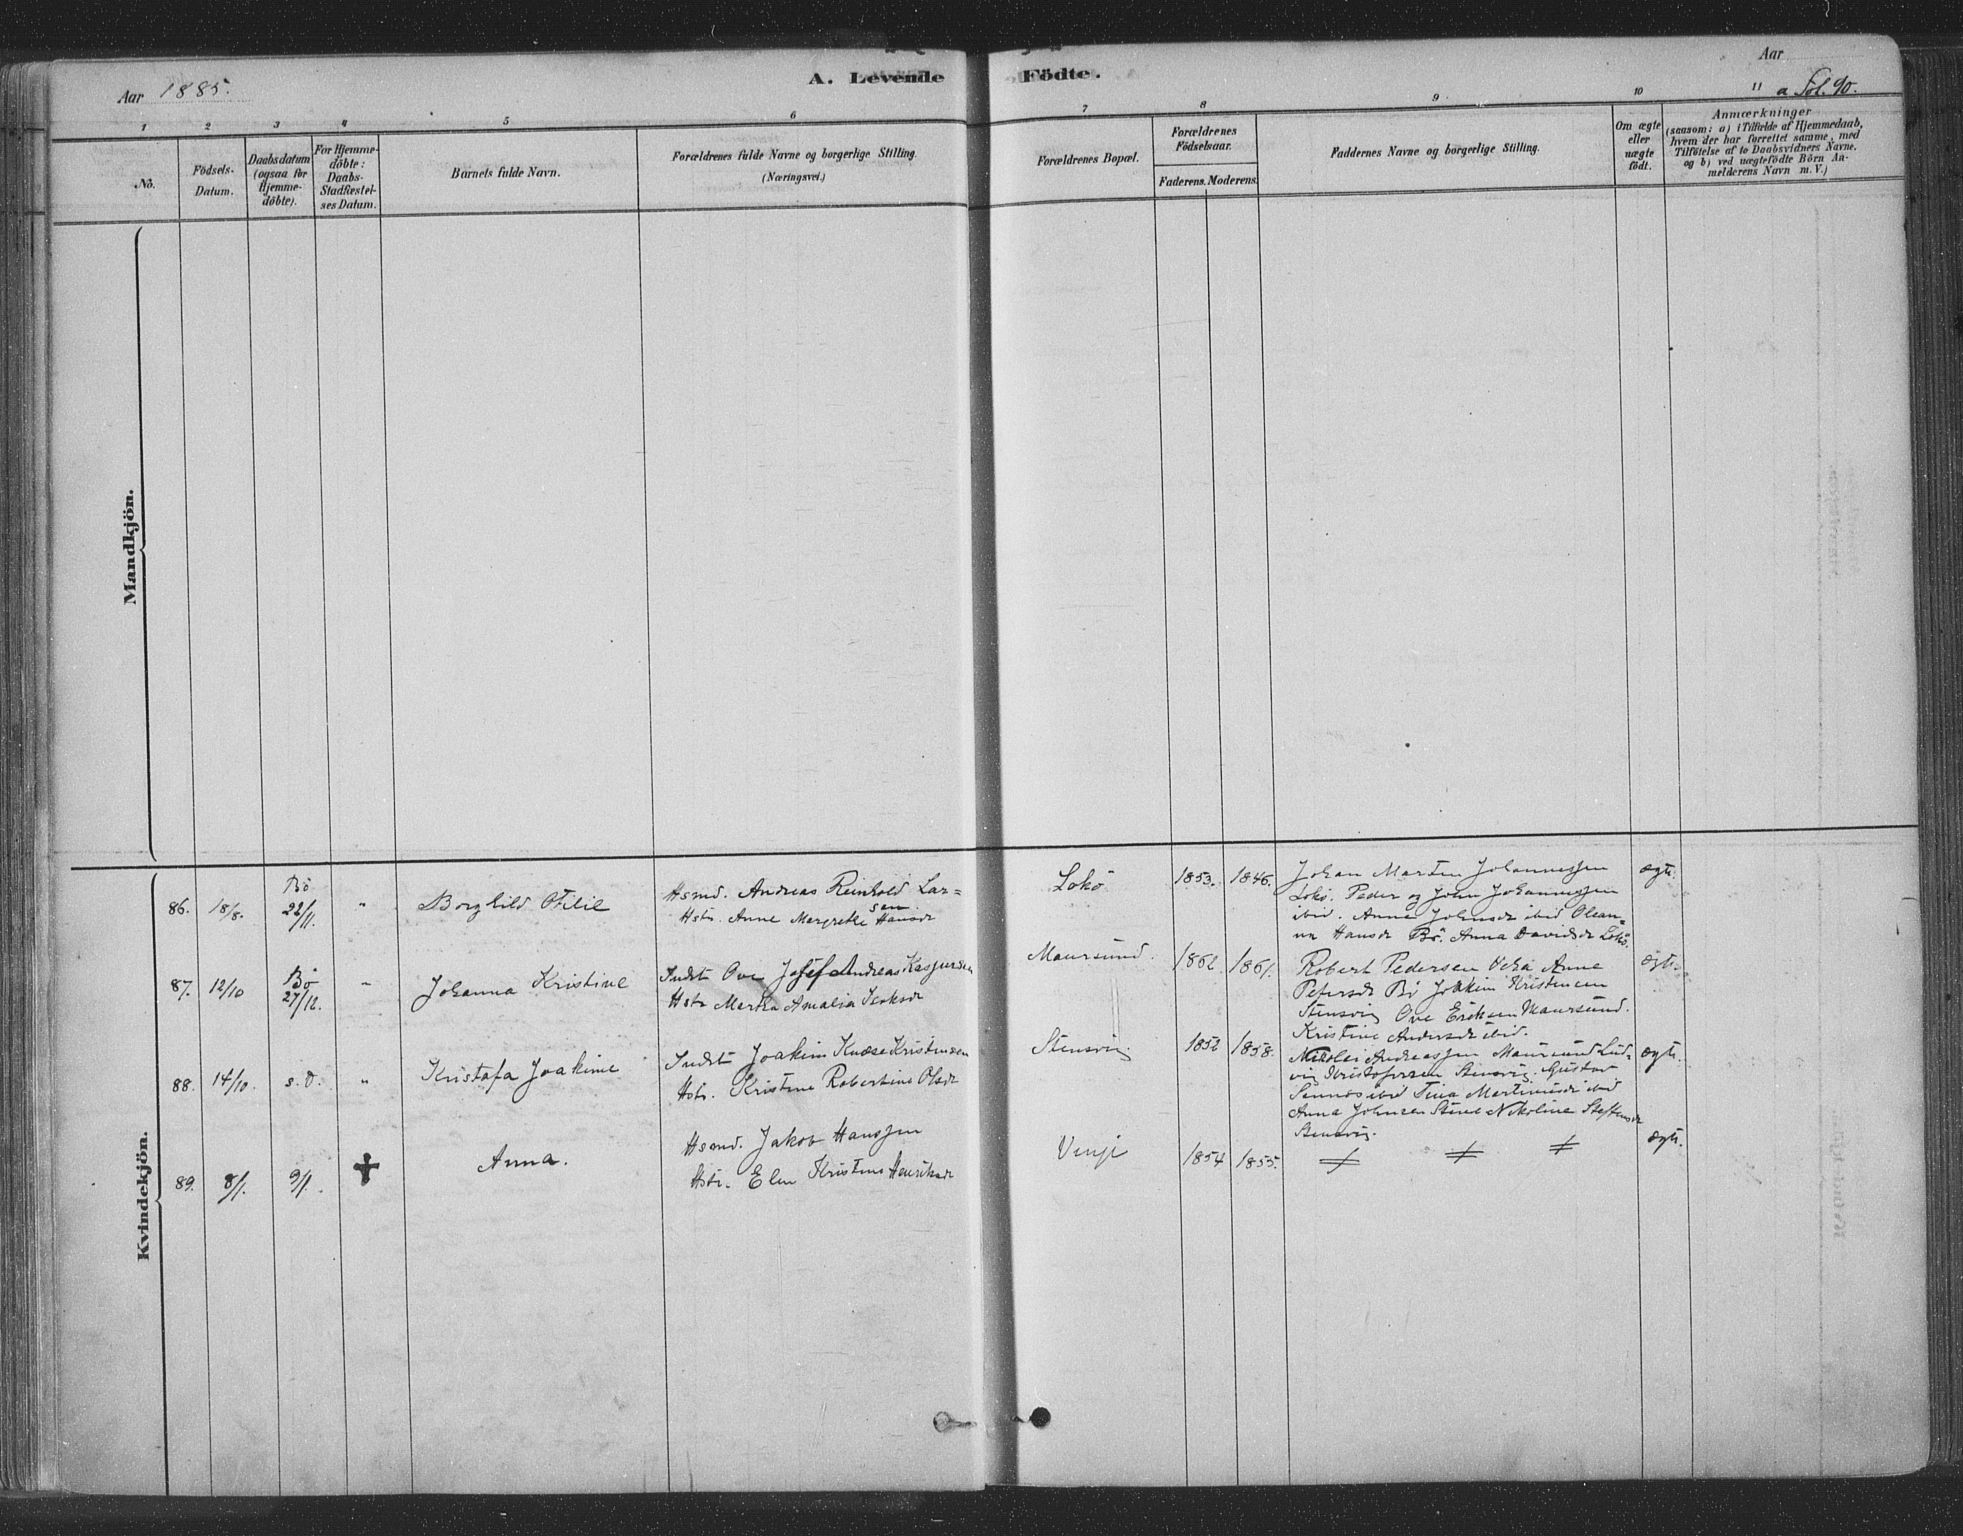 Aar 1885.
A. Levende Födte.
Aar
a Fol. 90.
1
2
3
4
5
6
7
8
9
10
11
No.
Födsels-
Datum.
Daabsdatum
(ogsaa for
Hjemme-
döbte).
For Hjemme-
döbte:
Daabs-
Stadfæstel-
ses Datum.
Barnets fulde Navn.
Forældrenes fulde Navne og borgerlige Stilling
(Næringsvei.)
Forældrenes Bopæl.
Forældrenes
Födselsaar.
Faderens. Moderens.
Faddernes Navne og borgerlige Stilling.
Om ægte
eller
uægte
födt.
Anmærkninger
(saasom: a) i Tilfælde af Hjemmedaab,
hvem der har forrettet samme, med
Tilföielse af to Daabsvidners Navne.
og b) ved uægtefödte Börn An-
melderens Navn m. V.)
Mandkjön.
Kvindekjön.
86. 18/8. Bö 22/11. " Borghild Otilie
Hsmd. Andreas Reinhold Lar=
sen
Hstr. Anne Margrethe Hansdr
Lokö 1853. 1846.
Johan Marten Johannessen
Lokö. Peder og John Johannessen
ibid. Anne Johnsdr ibid Olean=
na Hansdr Bö. Anna Davidsdr Lokö.
ægte.
87. 12/10 Bö 27/12. " Johanna Kristine
Indst Ove Josef Andreas Kaspersen
Hstr Martha Amalia
Maursund. 1862 1861.
Robert Pedersen Anne
Petersdr Bö Joakim Kristensen
Stensvig Ove Eriksen Maursund.
Kristine Andersdr ibid.
ægte.
88. 14/10. s. D. " Kristofa Joakime
Indst Joakim Knæse Kristensen
Hstr. Kristine Robertine Olsdr
Stensvig 1852 1858.
Nikolai Andreassen Maursund Lud-
vig Kristofersen Stensvig. Gustav
ibid Tina Martinusdr ibid
Anna Johnsen Stine Nikoline Steffensdr
Stensvig.
ægte.
89. 8/1. 9/1. ✝ Anna.
Hsmd. Jakob Hanssen
Hstr. Elen Kristine Henriksdr
Venje 1854 1855. ≠ ≠ ≠
ægte.